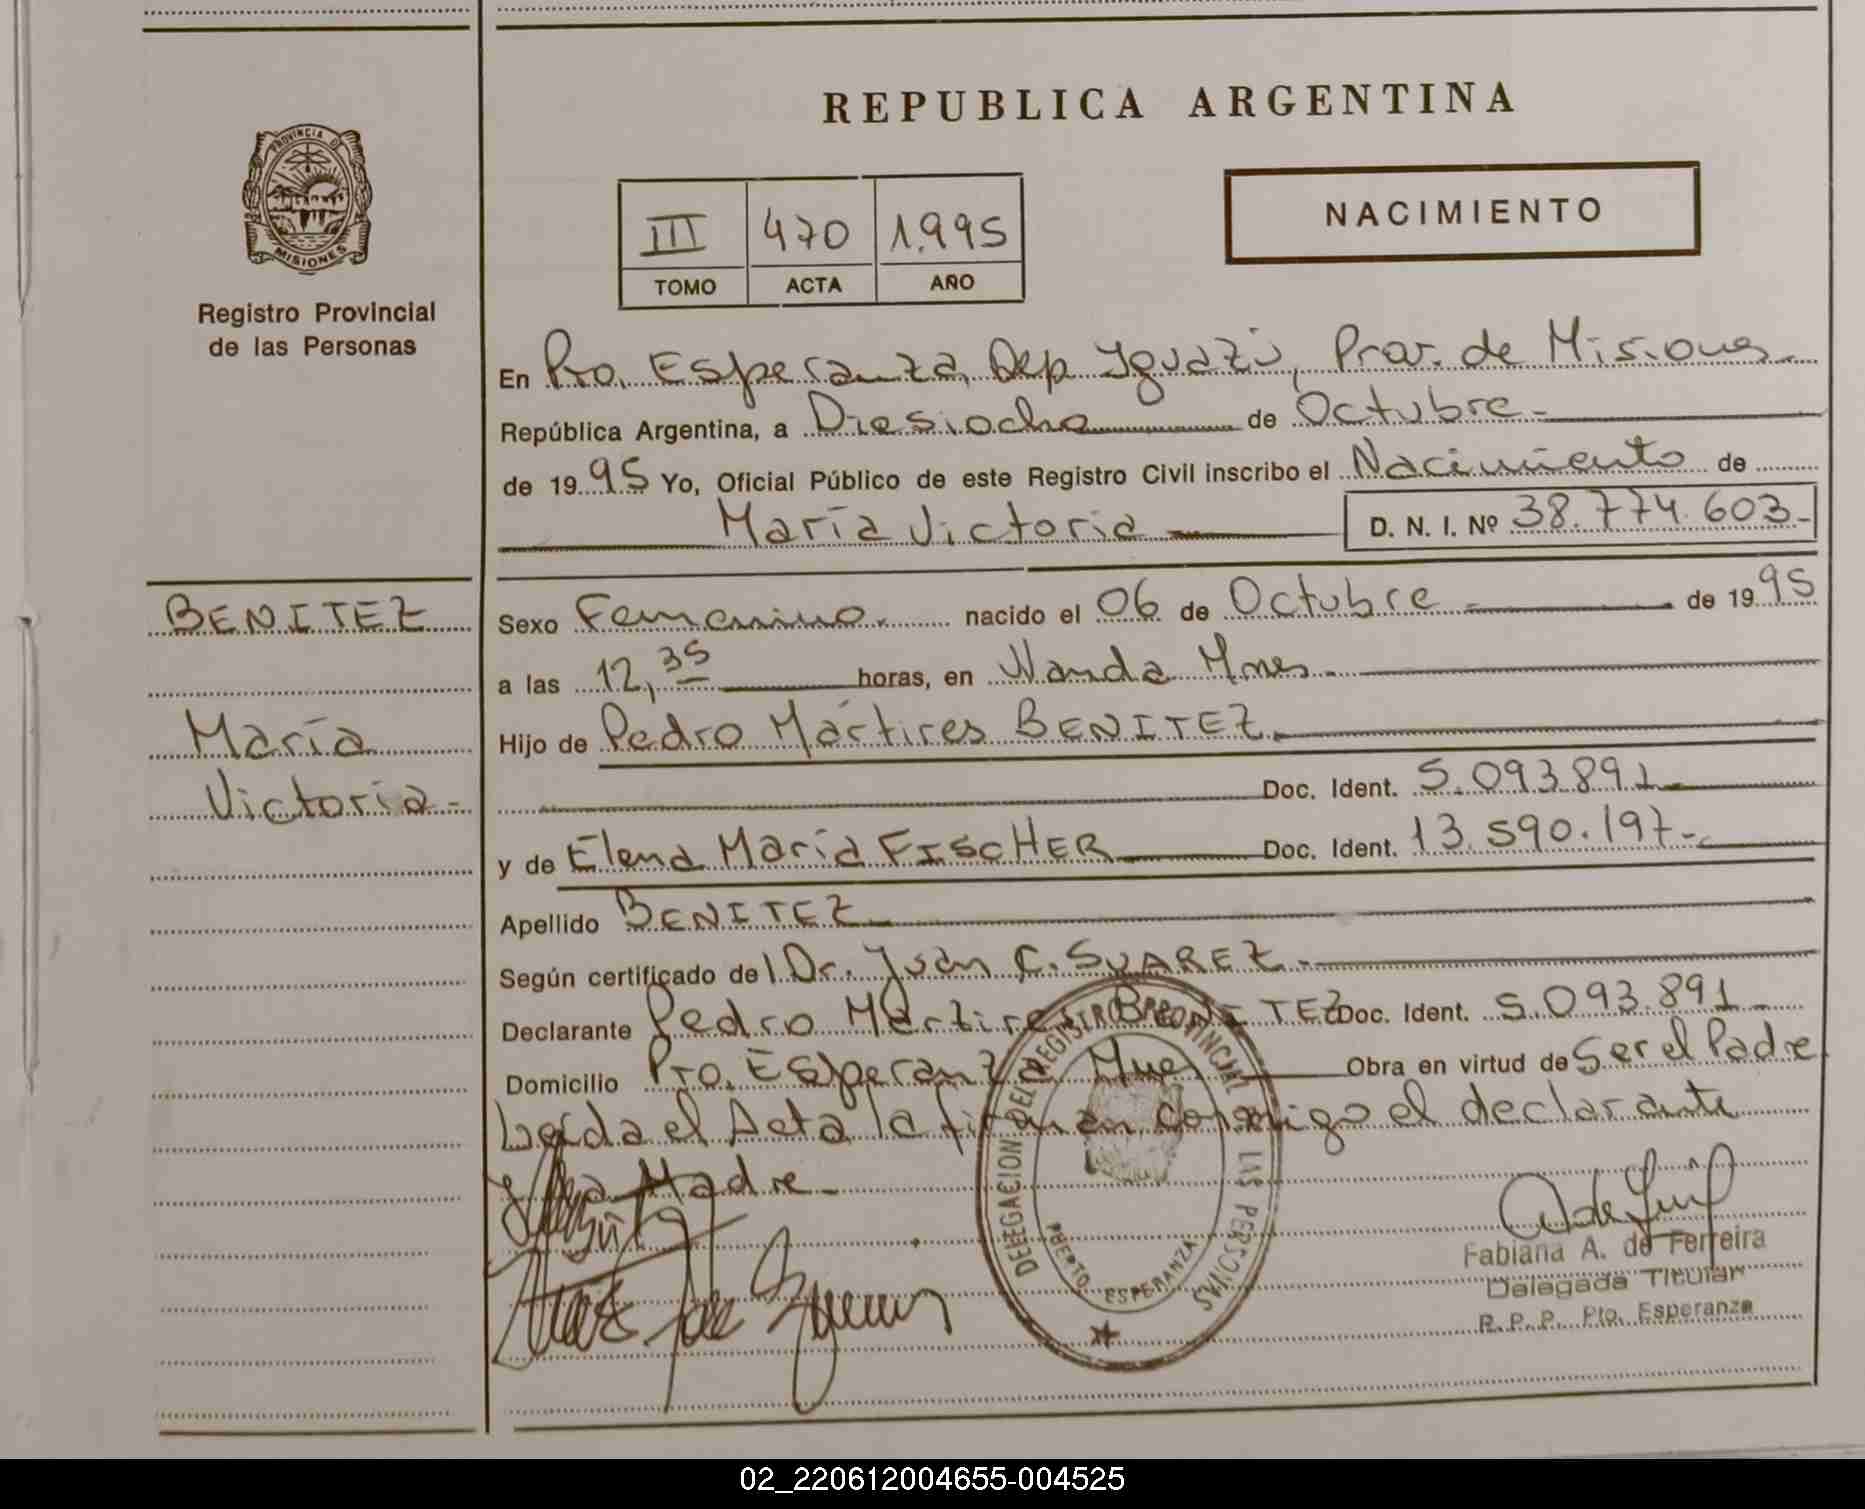 REPUBLICA ARGENTINA
PROVINCIA DE
MISIONES
Registro Provincial
de las Personas
III 470 1.995
TOMO ACTA AÑO
NACIMIENTO
En Pto. Esperanza, Dep Yguazú, Prov. de Misiones
República Argentina, a Diesiocho de Octubre.-
de 19 95 Yo, Oficial Público de este Registro Civil inscribo el Nacimiento de
María Victoria D. N. I. Nº 38.774.603-
BENITEZ
María
Victoria-
Sexo Femenino. nacido el 06 de Octubre de 19 95
a las 12,35 horas, en Wanda Mnes.
Hijo de Pedro Mártires BENITEZ.
Doc. Ident. 5.093.891
y de Elena María FISCHER Doc. Ident. 13.590.197-
Apellido BENITEZ
Según certificado del Dr. Juan C. SUAREZ.
Declarante Pedro Martires BENITEZ Doc. Ident. 5.093.891
Domicilio Pto. Esperanza Mnes Obra en virtud de Ser el Padre
Leída el Acta la firman conmigo el declarante
y la Madre
DELEGACION DEL REGISTRO PROVINCIAL DE LAS PERSONAS
PUERTO ESPERANZA
Fabiana A. de Ferreira
Delegada Titular
R. P. P. Pto. Esperanza
02_220612004655-004525